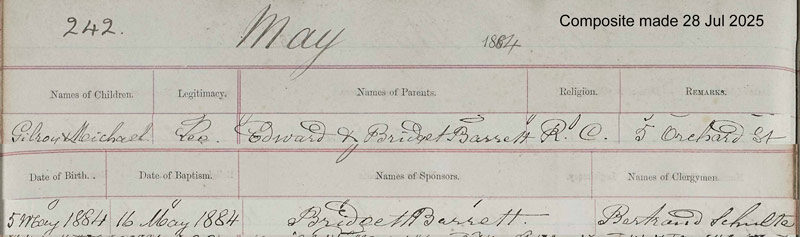 242. May 1884 Composite made 28 Jul 2025
Names of Children. Legitimacy. Names of Parents. Religion. REMARKS.
Gilroy Michael Leg. Edward & Bridget Barrett R. C. 5 Orchard St
Date of Birth. Date of Baptism. Names of Sponsors. Names of Clergymen.
5 May 1884 16 May 1884 Bridget Barrett. Bertrand Schulte